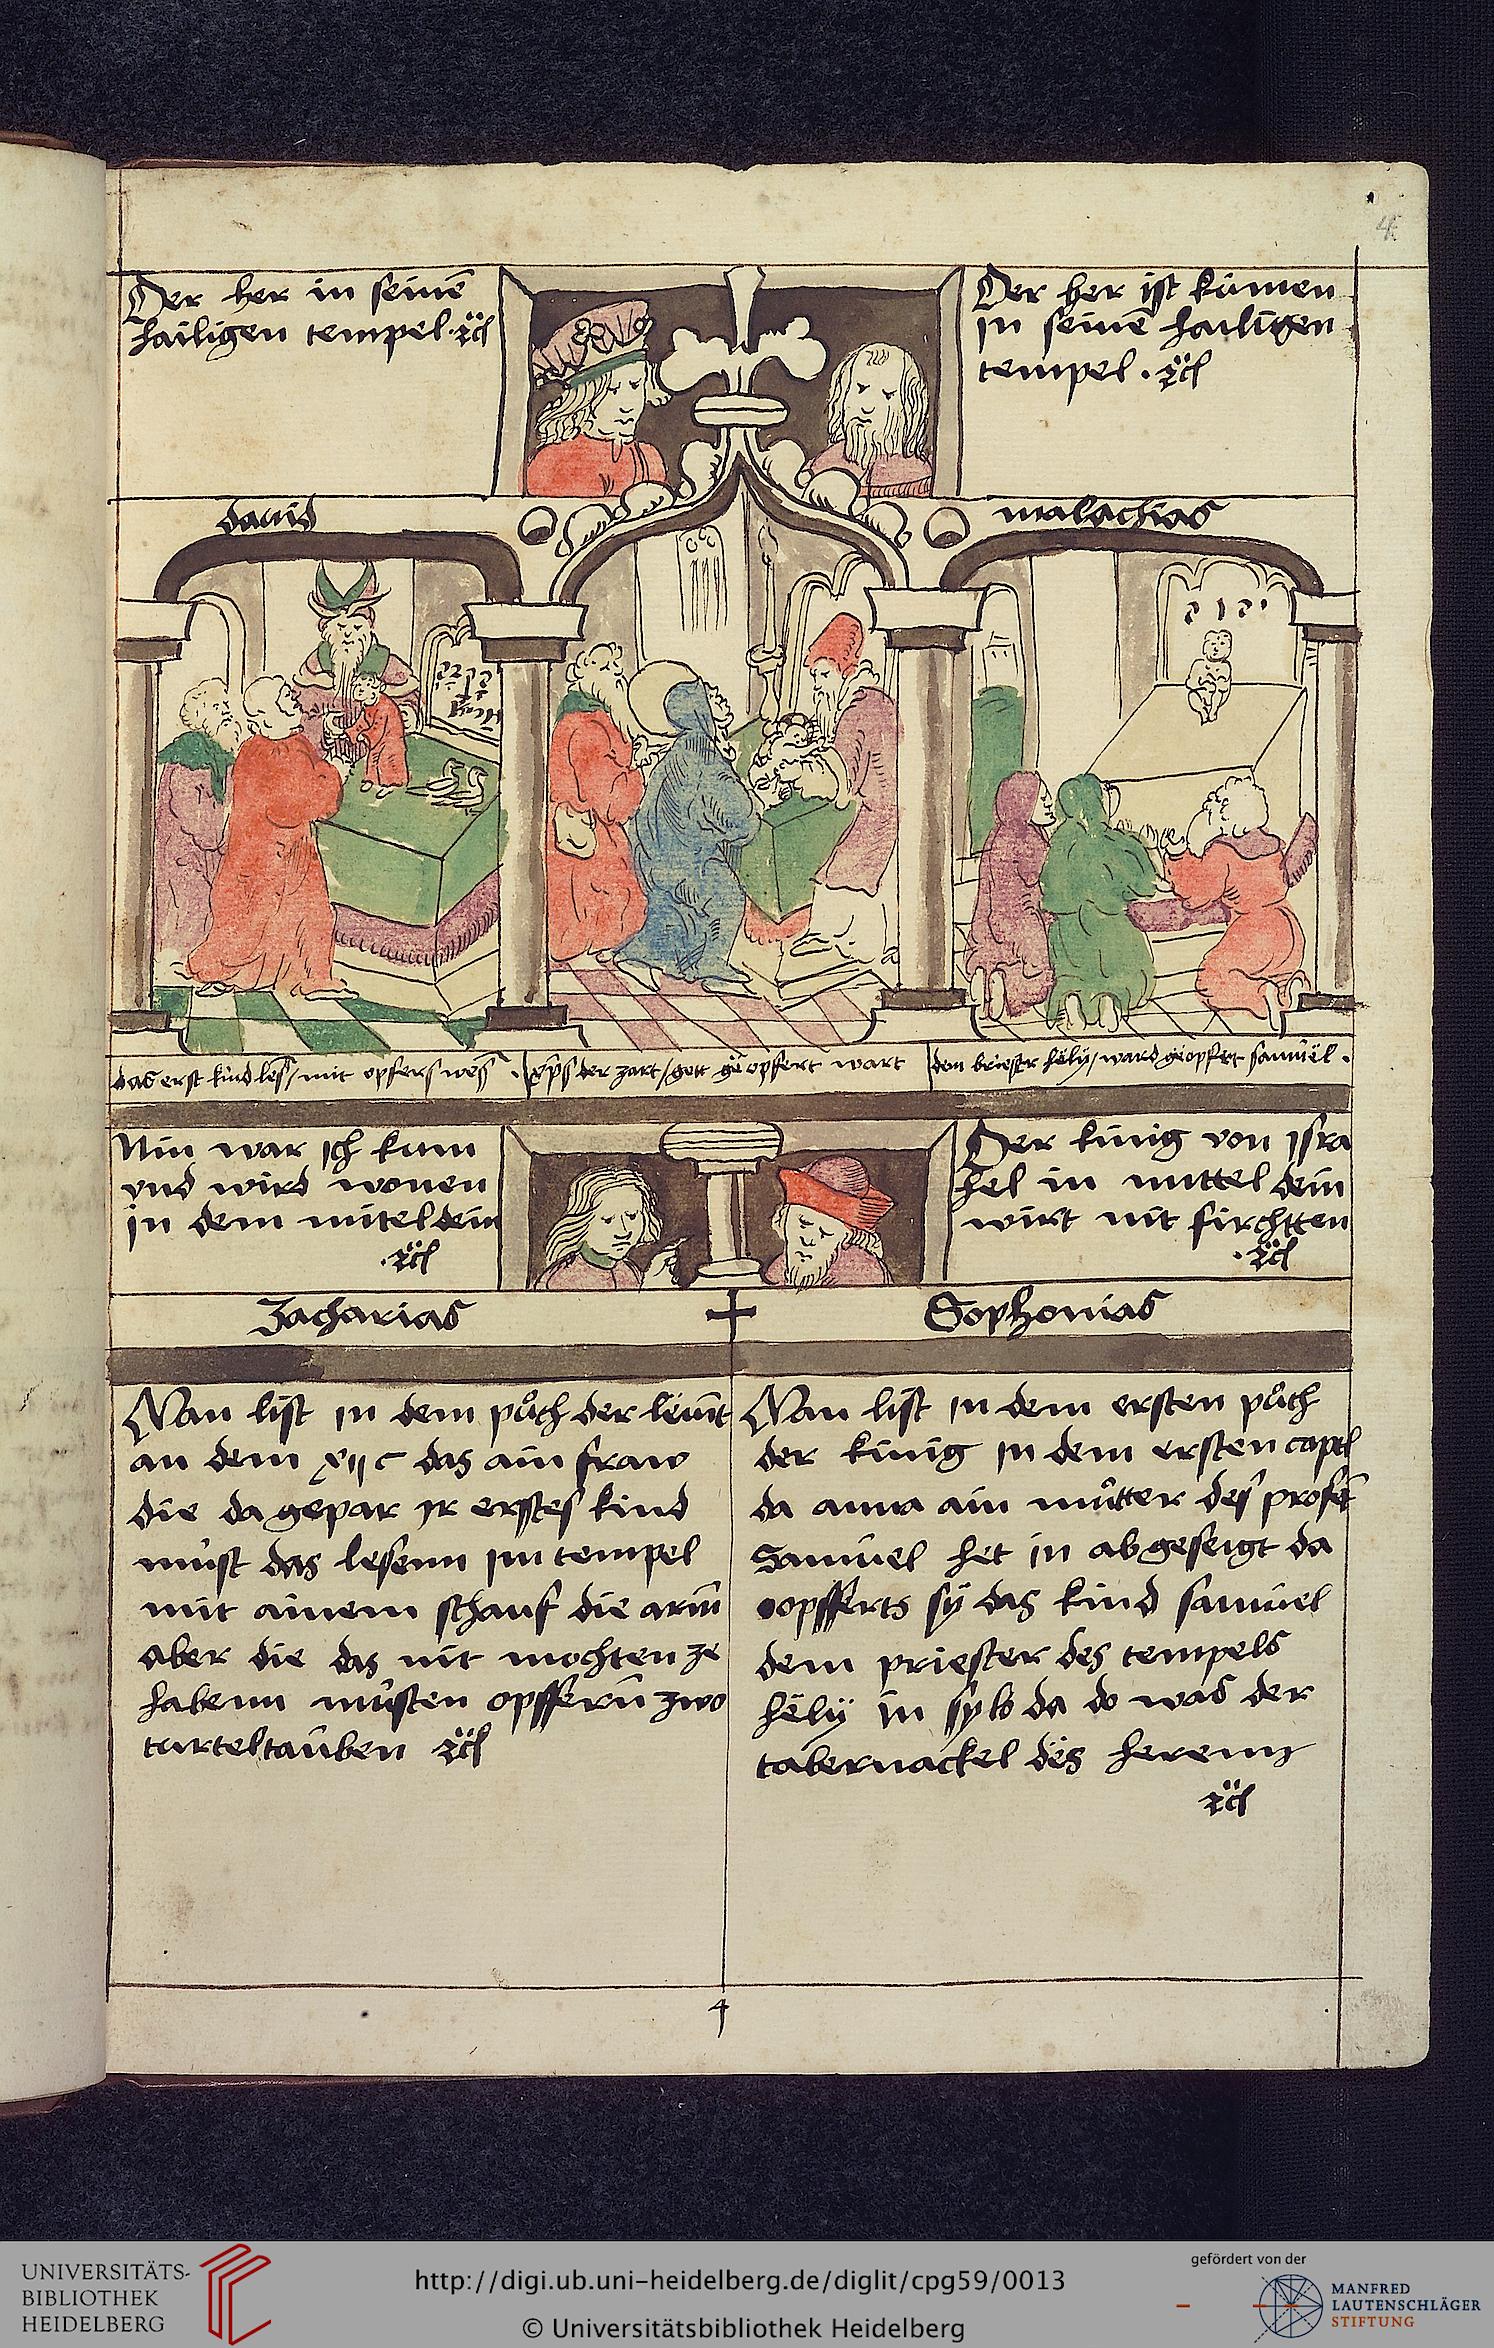 4
Der her in seinē
hailigen tempel · ꝛc̈
Der her ist kumen
in seinē hailigen
tempel · ꝛc̈
dauid
malachias
das erst kind les̄ / mit opfers wes̄ ·
xp̄s der zart / gott geopfert wart
dem briester hëly / ward geopfert samüel ·
Nin war ich kum
vnd wird wonen
in dem mitel dein
· ꝛc̈
Der künig von isra
hel in mittel dein
wirt nit firchtten
· ꝛc̈
Zacharias
Sophonias
Man list in dem půch der leuit
an dem xij c das ain fraw
die da gepar ir erstes kind
můst das lesenn im tempel
mit ainem schauf die arm̄
aber die das nit mochten ze
habenn můsten opffern zwo
turteltauben ꝛc̈
Man list in dem ersten půch
der künig in dem ersten captl
da anna ain můtter des
Samüel het in abgeseigt da
opfferts sÿ das kind samüel
dem priester des tempels
hëlÿ in sylo da do was der
tabernackel dës herenn
ꝛc̈
4
UNIVERSITÄTS-
BIBLIOTHEK
HEIDELBERG
http://digi.ub.uni-heidelberg.de/diglit/cpg59/0013
© Universitätsbibliothek Heidelberg
gefördert von der
MANFRED
LAUTENSCHLÄGER
STIFTUNG